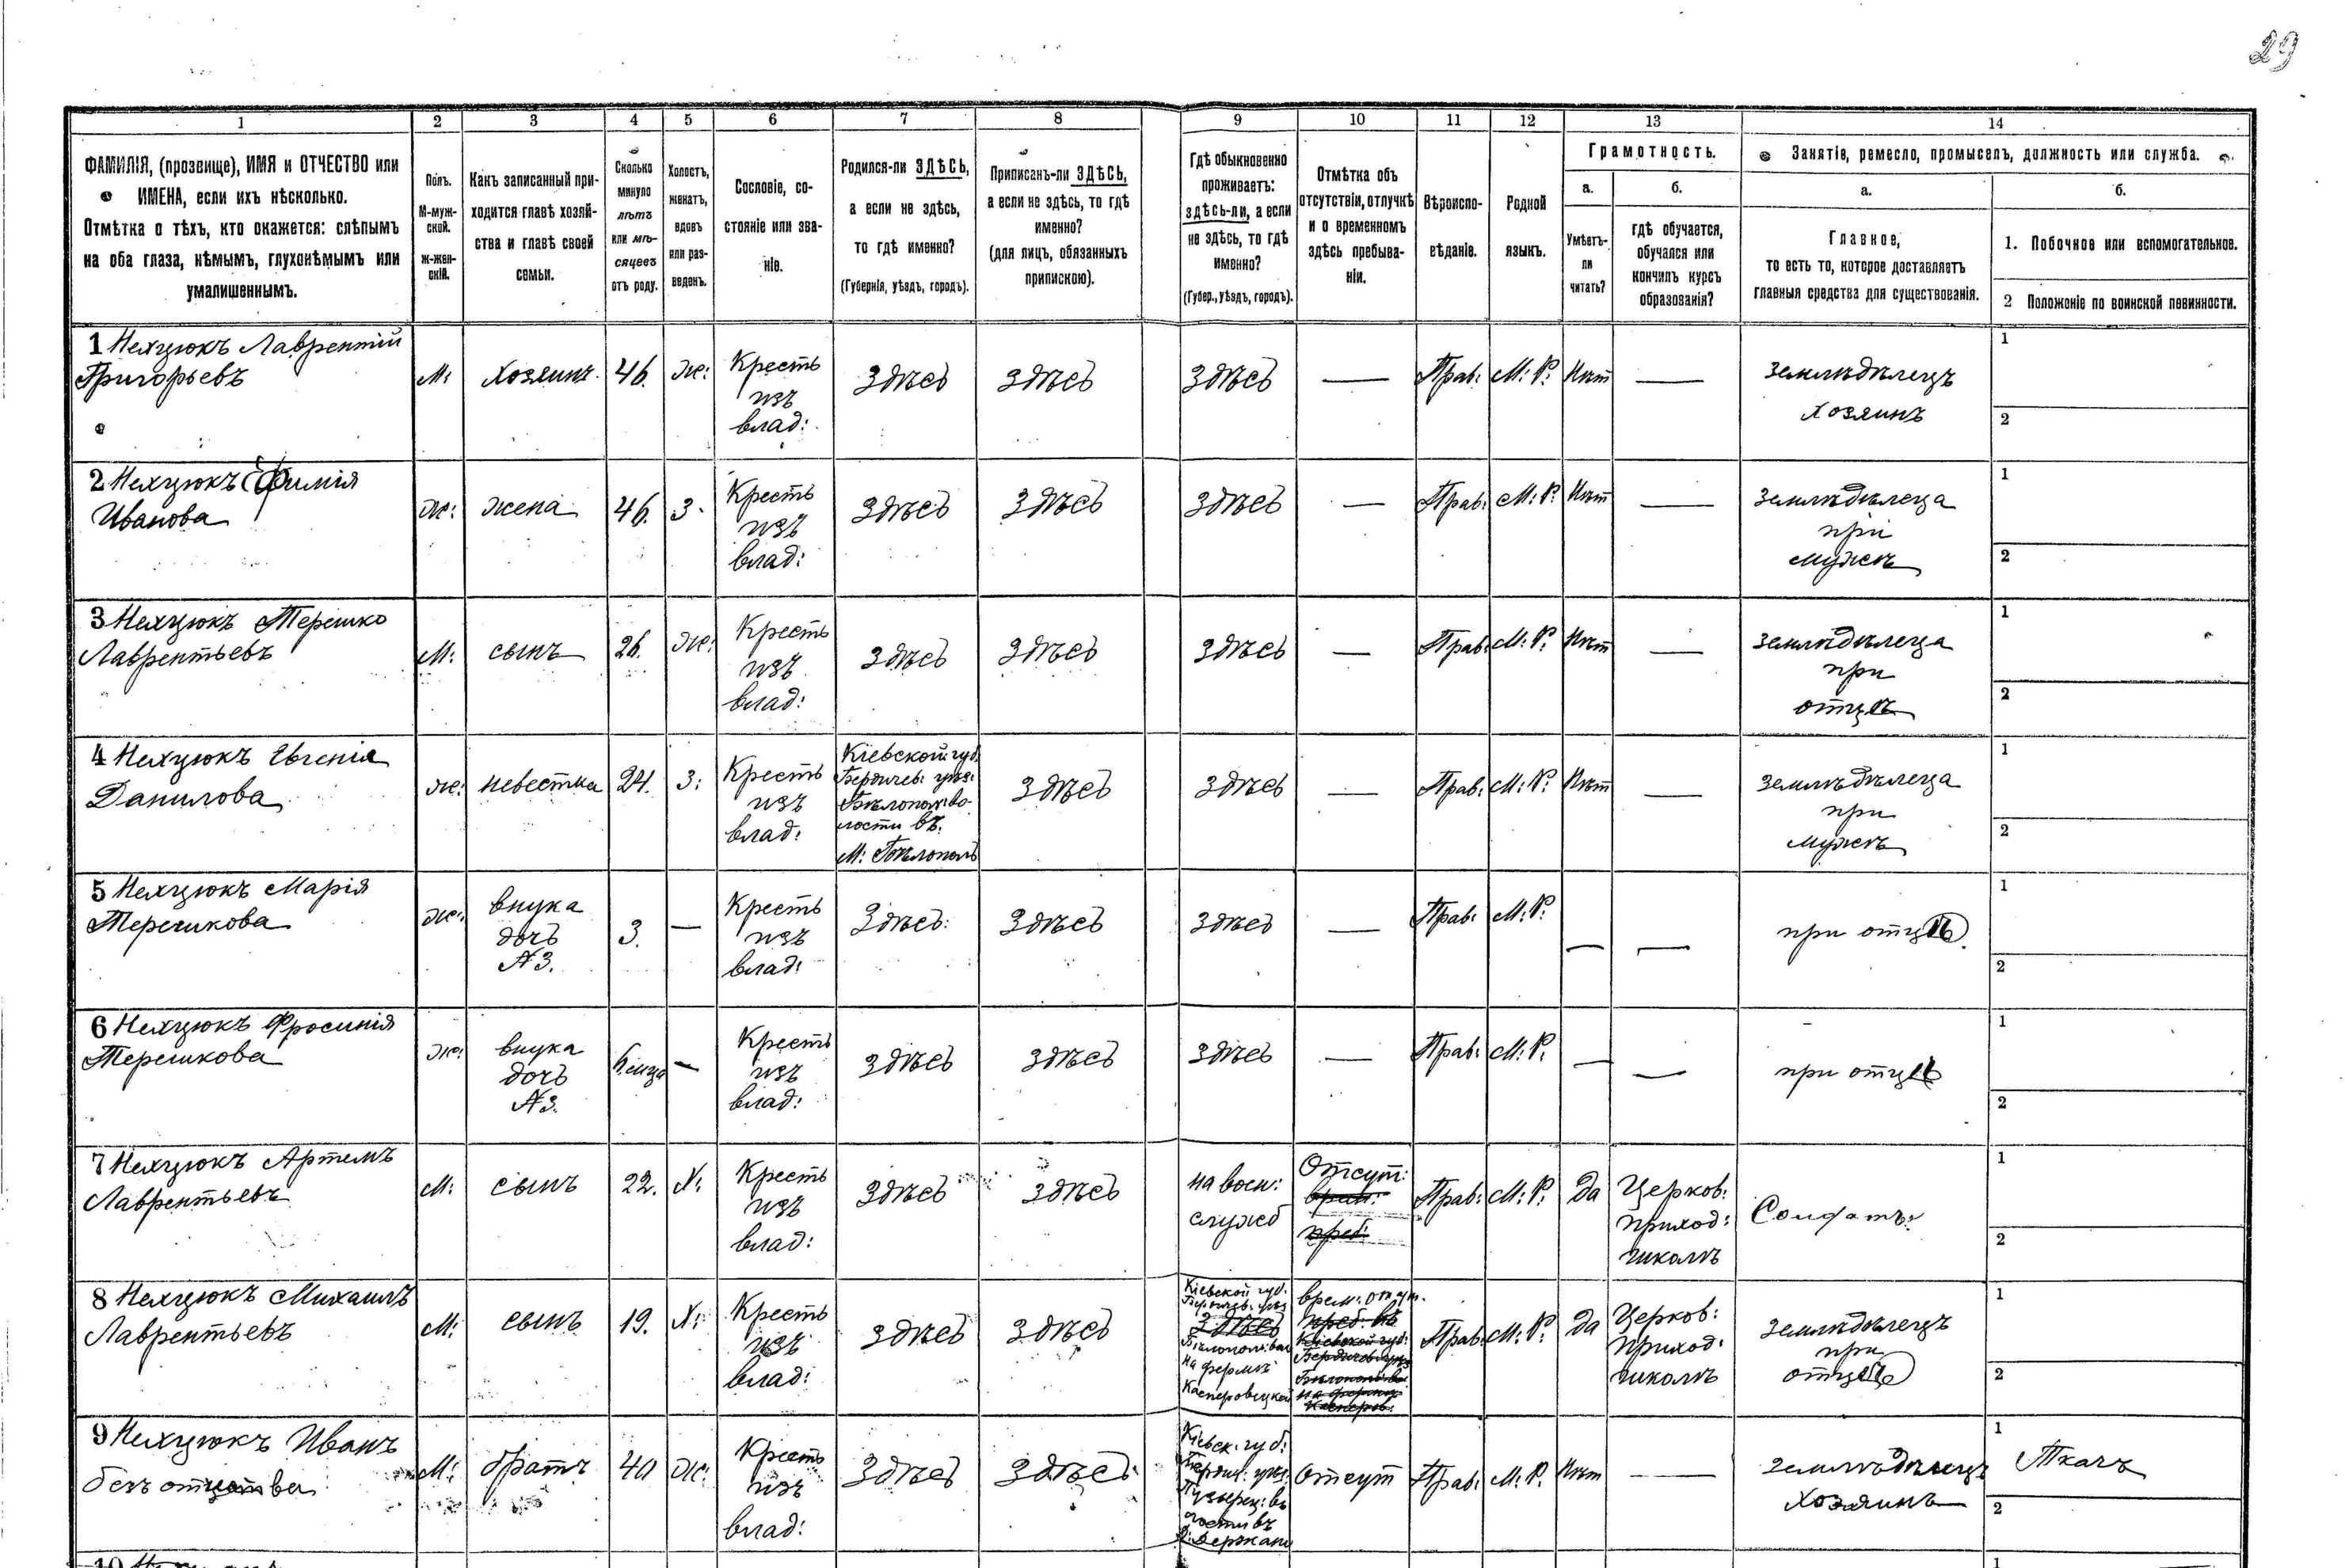 29
1 2 3 4 5 6 7 8 9 10 11 12 13 14
ФАМИЛІЯ, (прозвище), ИМЯ и ОТЧЕСТВО или
ИМЕНА, если ихъ нѣсколько.
Отмѣтка о тѣхъ, кто окажется: слѣпымъ
на оба глаза, нѣмымъ, глухонѣмымъ или
умалишеннымъ.
Полъ.
М-муж-
ской.
Ж-жен-
скій.
Какъ записанный при-
ходится главѣ хозяй-
ства и главѣ своей
семьи.
Сколько
минуло
лѣтъ
или мѣ-
сяцевъ
отъ роду.
Холостъ,
женатъ,
вдовъ
или раз-
веденъ.
Сословіе, со-
стояніе или зва-
ніе.
Родился-ли ЗДѢСЬ,
а если не здѣсь,
то гдѣ именно?
(Губернія, уѣздъ, городъ).
Приписанъ-ли ЗДѢСЬ,
а если не здѣсь, то гдѣ
именно?
(для лицъ, обязанныхъ
припискою).
Гдѣ обыкновенно
проживаетъ:
здѣсь-ли, а если
не здѣсь, то гдѣ
именно?
(Губер., уѣздъ, городъ).
Отмѣтка объ
отсутствіи, отлучкѣ
и о временномъ
здѣсь пребыва-
ніи.
Вѣроиспо-
вѣданіе.
Родной
языкъ.
Грамотность.
а.
Умѣетъ-
ли
читать?
б.
гдѣ обучается,
обучался или
кончилъ курсъ
образованія?
Занятіе, ремесло, промыселъ, должность или служба.
а.
Главное,
то есть то, которое доставляетъ
главныя средства для существованія.
б.
1. Побочное или вспомогательное.
2 Положеніе по воинской повинности.
1 Нехцюкъ Лаврентій
Григорьевъ
М:
Хозяинъ
46.
Же:
Кресть
изъ
влад:
Здѣсь
Здѣсь
Здѣсь
—
Прав:
М: Р:
Нѣт
—
Землѣдѣлецъ
Хозяинъ
1
2
2 Нехцюкъ Ефимія
Иванова
Же:
жена
46.
З.
Кресть
изъ
влад:
Здѣсь
Здѣсь
Здѣсь
—
Прав:
М: Р:
Нѣт
—
Землѣдѣлеца
при
мужѣ
1
2
3 Нехцюкъ Терешко
Лаврентьевъ
М:
сынъ
26.
Же:
Кресть
изъ
влад:
Здѣсь
Здѣсь
Здѣсь
—
Прав:
М: Р:
Нѣт
—
Землѣдѣлеца
при
отцѣ
1
2
4 Нехцюкъ Евгенія
Данилова
Же:
невестка
24.
З:
Кресть
изъ
влад:
Кіевской губ.
Бердичев: уѣз:
Бѣлопол: во-
лости въ
М: Бѣлополь
Здѣсь
Здѣсь
—
Прав:
М: Р:
Нѣт
—
Землѣдѣлеца
при
мужѣ
1
2
5 Нехцюкъ Марія
Терешкова
Же:
внука
дочь
№3.
3.
—
Кресть
изъ
влад:
Здѣсь:
Здѣсь
Здѣсь
—
Прав:
М: Р:
—
—
при отцѣ
1
2
6 Нехцюкъ Фросинія
Терешкова
Же:
внука
дочь
№3.
—
Кресть
изъ
влад:
Здѣсь
Здѣсь
Здѣсь
—
Прав:
М: Р:
—
—
при отцѣ
1
2
7 Нехцюкъ Артемъ
Лаврентьевъ
М:
сынъ
22.
Х:
Кресть
изъ
влад:
Здѣсь
Здѣсь
на воен:
служб
Отсут:
врем:
преб:
Прав:
М: Р:
Да
Церков:
приход:
школѣ
Солдатъ:
1
2
8 Нехцюкъ Михаилъ
Лаврентьевъ
М:
сынъ
19.
Х:
Кресть
изъ
влад:
Здѣсь
Здѣсь
Кіевской губ:
Бердичев: уѣз
Здѣсь
Бѣлопол: вол
на фермѣ
Касперовецкой
врем: отсут.
преб: въ
Кіевской губ:
Бердичев: уѣз
Бѣлопол: во
на фермѣ
Касперов:
Прав:
М: Р:
Да
Церков:
приход:
школѣ
Землѣдѣлецъ
при
отцѣ
1
2
9 Нехцюкъ Иванъ
безъ отчества
М:
братъ
40
Же:
Кресть
изъ
влад:
Здѣсь
Здѣсь
Кіевск: губ:
Бердич: уѣз:
лости въ
Отсут
Прав:
М: Р:
Нѣт
—
Землѣдѣлецъ
Хозяинъ
1 Ткачъ
2
10
1